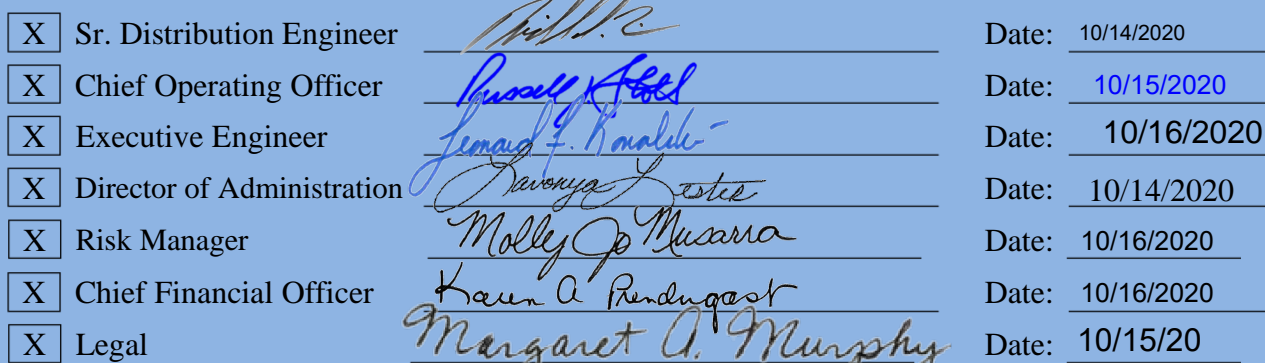 X Sr. Distribution Engineer Date: 10/14/2020
X Chief Operating Officer Russell Date: 10/15/2020
X Executive Engineer Leonard F. Date: 10/16/2020
X Director of Administration Lavonya Lester Date: 10/14/2020
X Risk Manager Molly Jo Musarra Date: 10/16/2020
X Chief Financial Officer Karen A Prendergast Date: 10/16/2020
X Legal Margaret A. Murphy Date: 10/15/20